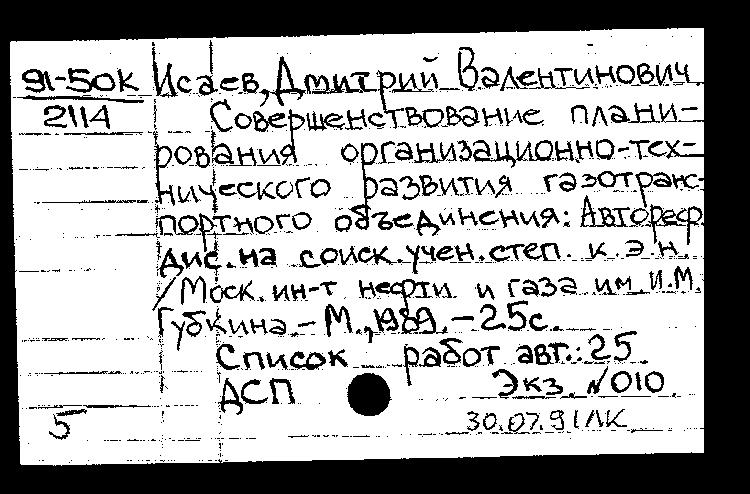 91-50К Исаев, Дмитрий Валентинович.
2114 Совершенствование плани-
рования организационно-тех-
нического развития газотранс-
портного объединения: Автореф.
дис. на соиск. учен. степ. к.э.н.
/Моск. ин-т нефти и газа им. И.М.
Губкина. - М., 1989. - 25с.
Список работ авт.: 25.
ДСП Экз. N 010.
5 30.07.91 ЛК